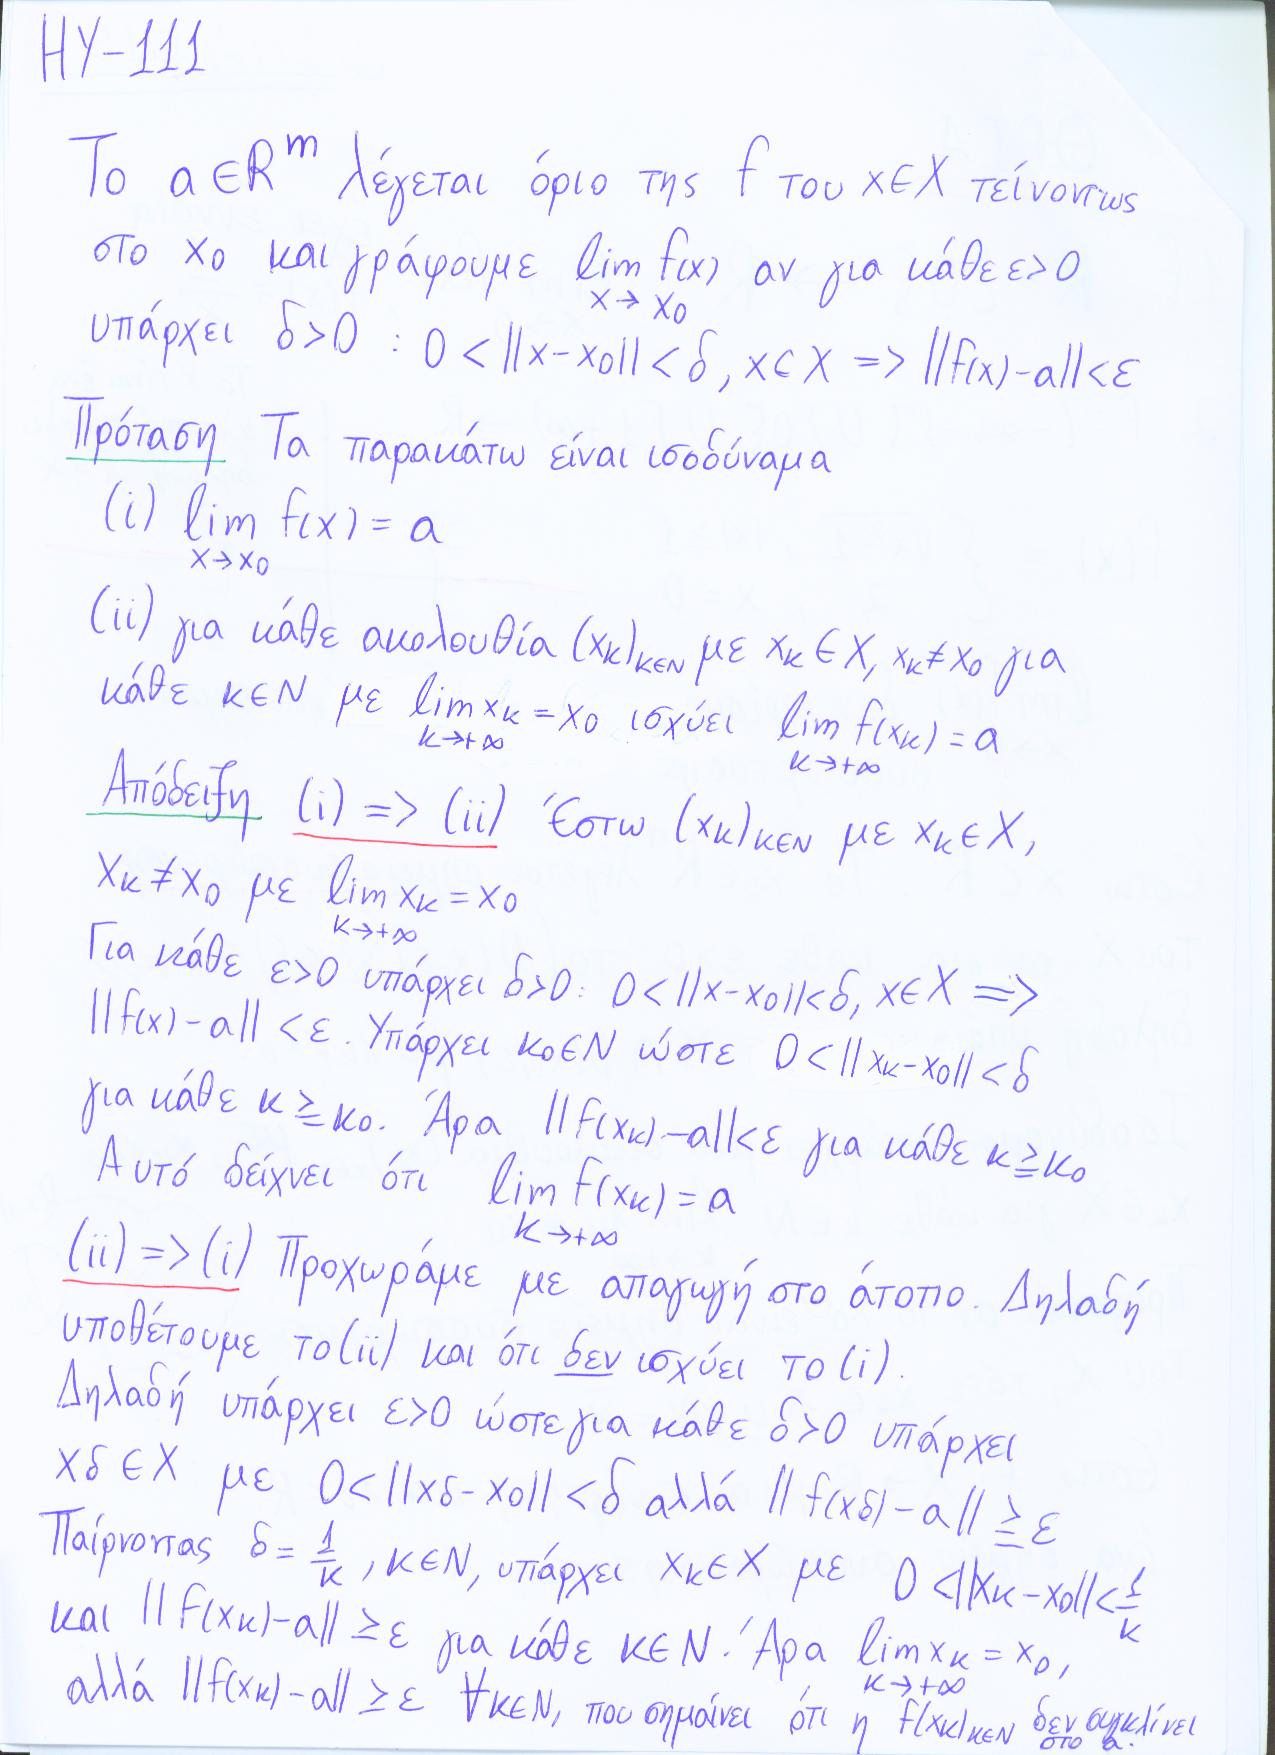 HY-111
Το a∈R^m λέγεται όριο της f του x∈X τείνοντως
στο x₀ και γράφουμε lim f(x) αν για κάθε ε>0
x→x₀
υπάρχει δ>0 : 0<||x-x₀||<δ, x∈X => ||f(x)-a||<ε
Πρόταση Τα παρακάτω είναι ισοδύναμα
(i) lim f(x) = a
x→x₀
(ii) για κάθε ακολουθία (xκ)κ∈N με xκ∈X, xκ≠x₀ για
κάθε κ∈N με lim xκ = x₀ ισχύει lim f(xκ) = a
κ→+∞ κ→+∞
Απόδειξη (i) => (ii) Έστω (xκ)κ∈N με xκ∈X,
xκ≠x₀ με lim xκ = x₀
κ→+∞
Για κάθε ε>0 υπάρχει δ>0: 0<||x-x₀||<δ, x∈X =>
||f(x)-a||<ε. Υπάρχει κ₀∈N ώστε 0<||xκ-x₀||<δ
για κάθε κ≥κ₀. Άρα ||f(xκ)-a||<ε για κάθε κ≥κ₀
Αυτό δείχνει ότι lim f(xκ) = a
κ→+∞
(ii) => (i) Προχωράμε με απαγωγή στο άτοπο. Δηλαδή
υποθέτουμε το (ii) και ότι δεν ισχύει το (i).
Δηλαδή υπάρχει ε>0 ώστε για κάθε δ>0 υπάρχει
xδ∈X με 0<||xδ-x₀||<δ αλλά ||f(xδ)-a||≥ε
Παίρνοντας δ=1/κ, κ∈N, υπάρχει xκ∈X με 0<||xκ-x₀||<1/κ
και ||f(xκ)-a||≥ε για κάθε κ∈N. Άρα lim xκ = x₀,
κ→+∞
αλλά ||f(xκ)-a||≥ε ∀κ∈N, που σημαίνει ότι η f(xκ)κ∈N δεν συγκλίνει
στο a.